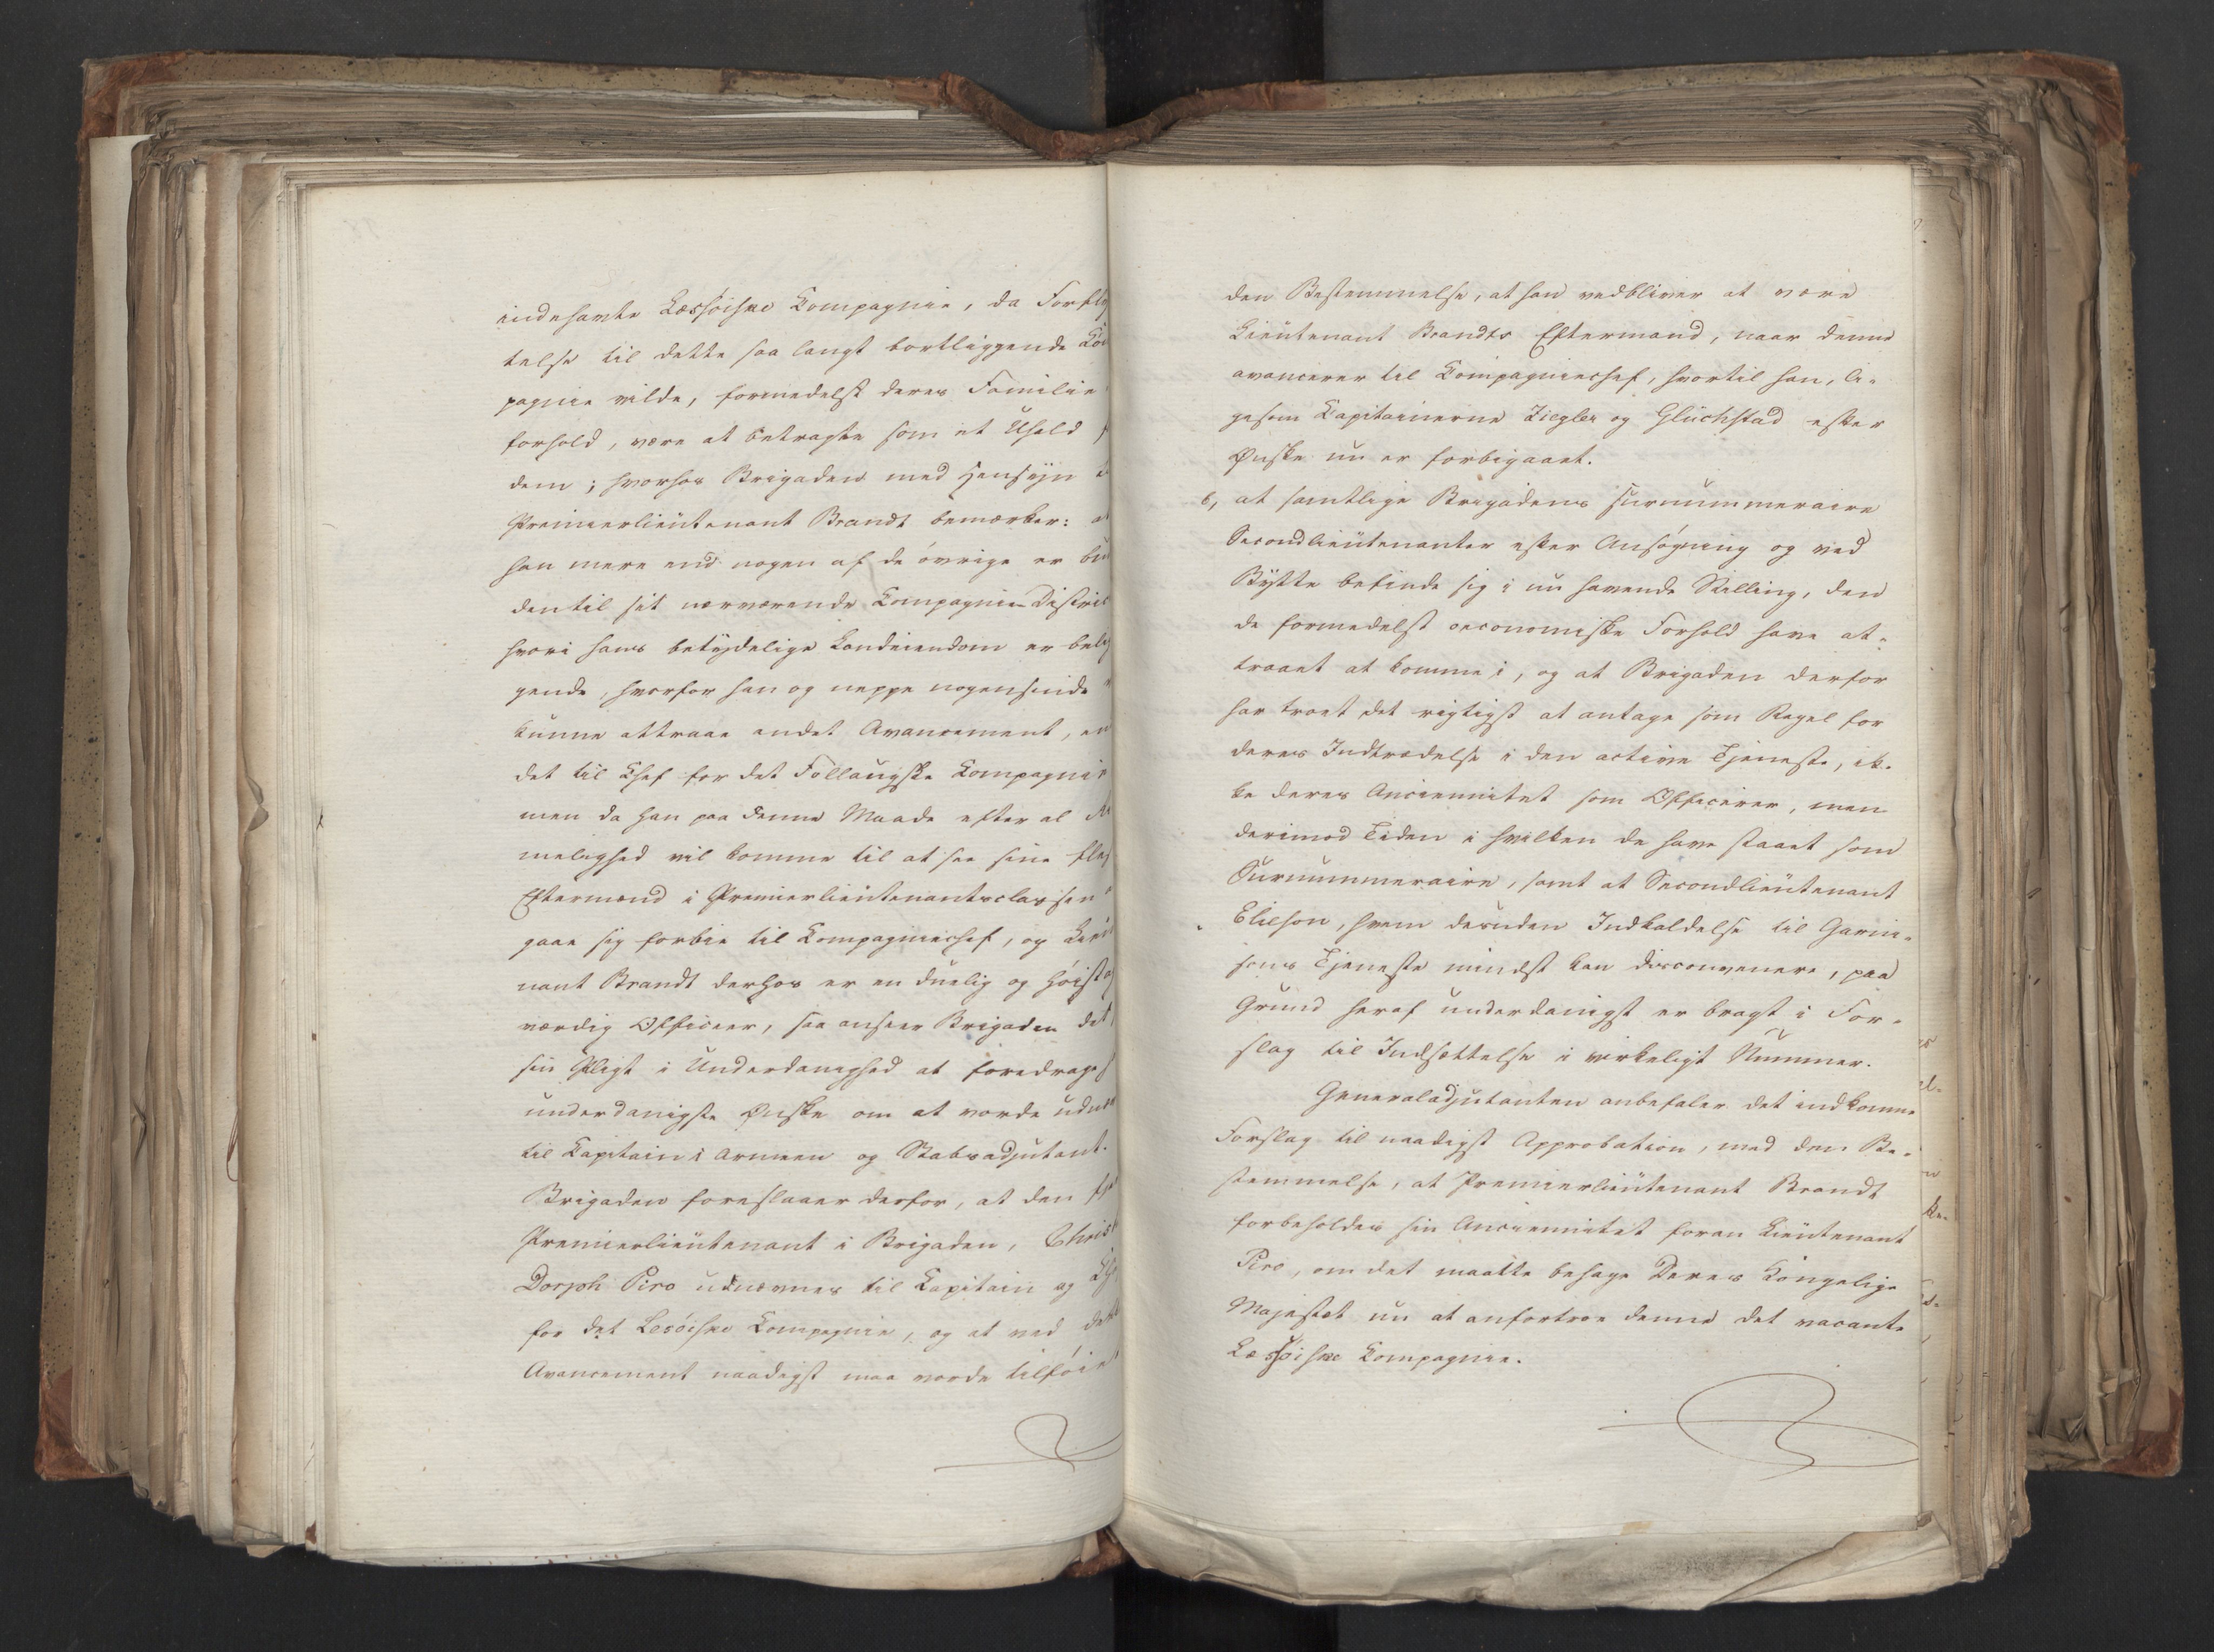 indehavte Læssöiske Compagnie, da Forfly
telse til dette saa langt bortliggende Com
pagnie vilde, formedelst deres Familie
forhold, være at betragte som et Uheld f
dem; hvorhos Brigaden med Hensyn t
Premierlieutenant Brandt bemærker: at
han mere end nogen af de övrige er bun
den til sit nærværende Compagnie-District
hvori hans betydelige Landeiendom er belig
gende, hvorfor han og neppe nogensinde
kunne attraae andet Avancement, en
det til Chef for det Follaugske Compagnie
men da han paa denne Maade efter al Ri
melighed vil komme til at see sine fles
Eftermænd i Premierlieutenantsclassen
gaae sig forbie til Compagniechef, og Lieut
nant Brandt derhos er en duelig og höist ag
værdig Officeer, saa anseer Brigaden det
sin Pligt i Underdanighed at foredrage h
underdanigste Ønske om at vorde udnæv
til Capitain i Armeen og Stabsadjutant.
Brigaden foreslaaer derfor, at den
Premierlieutenant i Brigaden, Christ
Dorph Piro udnævnes til Capitain og Che
for det Lesöiske Compagnie, og at ved dette
Avancement naadigst maa vorde tilföiet
den Bestemmelse, at han vedbliver at være
Lieutenant Brandts Eftermand, naar denne
avancerer til Compagniechef, hvortil han, li-
gesom Capitainerne Ziegler og Glückstad efter
Ønske nu er forbigaaet.
6, at samtlige Brigadens surnummeraire
Secondlieutenanter efter Ansögning og ved
Bytte befinde sig i nu havende Stilling, den
de formedelst oeconomiske Forhold have at-
traaet at komme i, og at Brigaden derfor
har troet det rigtigst at antage som Regel for
deres Indtrædelse i den active Tjeneste, ik-
ke deres Anciennitet som Officerer, men
derimod Tiden i hvilken de have staaet som
Surnummeraire, samt at Secondlieutenant
Elieson, hvem desuden Indkaldelse til Garni-
sons Tjeneste mindst kan disconvenere, paa
Grund heraf underdanigst er bragt i For-
slag til Indsættelse i virkeligt Nummer.
Generaladjutanten anbefaler det indkomne
Forslag til naadigst Approbation, med den Be-
stemmelse, at Premierlieutenant Brandt
forbeholdes sin Anciennitet foran Lieutenant
Piro, om det maatte behage Deres Kongelige
Majestæt nu at anfortroe denne det vacante
Læssöiske Compagnie.